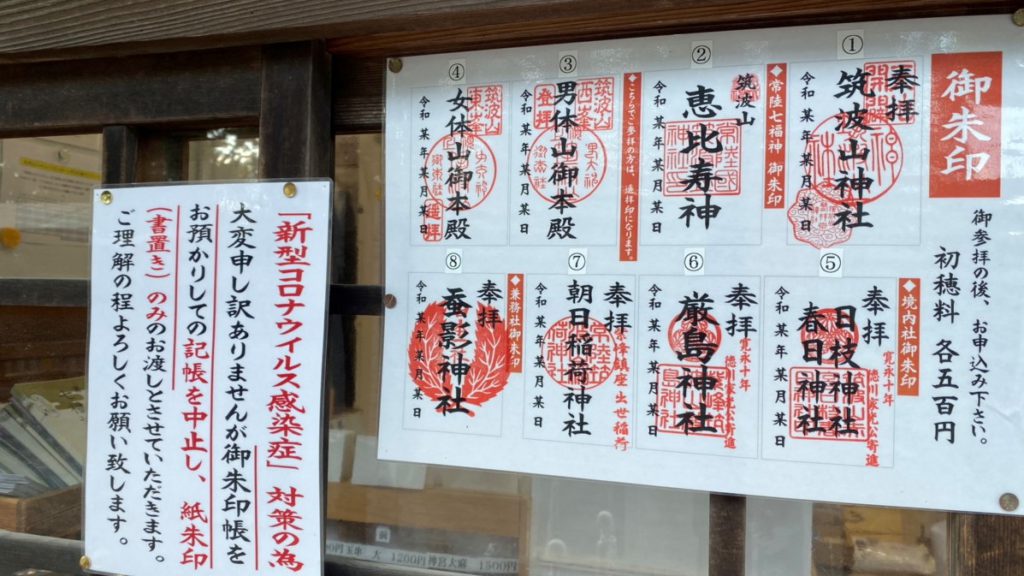 御朱印
御参拝の後、お申込み下さい。
初穂料 各五百円
①
奉拝
筑波山神社
令和 某年 某月 某日
◆常陸七福神 御朱印
②
筑波山
恵比寿神
令和 某年 某月 某日
◆こちらでご参拝の方は、遥拝印になります。
③
筑波山
男体山御本殿
登拝
令和 某年 某月 某日
④
筑波山
女体山御本殿
令和 某年 某月 某日
◆境内社御朱印
⑤
奉拝
寛永十年
徳川家光公寄進
日枝神社
春日神社
令和 某年 某月 某日
⑥
奉拝
寛永十年
徳川家光公寄進
厳島神社
令和 某年 某月 某日
⑦
奉拝
朝日稲荷神社
出世稲荷
令和 某年 某月 某日
◆兼務社御朱印
⑧
奉拝
蚕影神社
令和 某年 某月 某日
「新型コロナウイルス感染症」対策の為
大変申し訳ありませんが御朱印帳を
お預かりしての記帳を中止し、紙朱印
(書置き)のみのお渡しとさせていただきます。
ご理解の程よろしくお願い致します。
玉串 大 1200円 神宮大麻 1500円